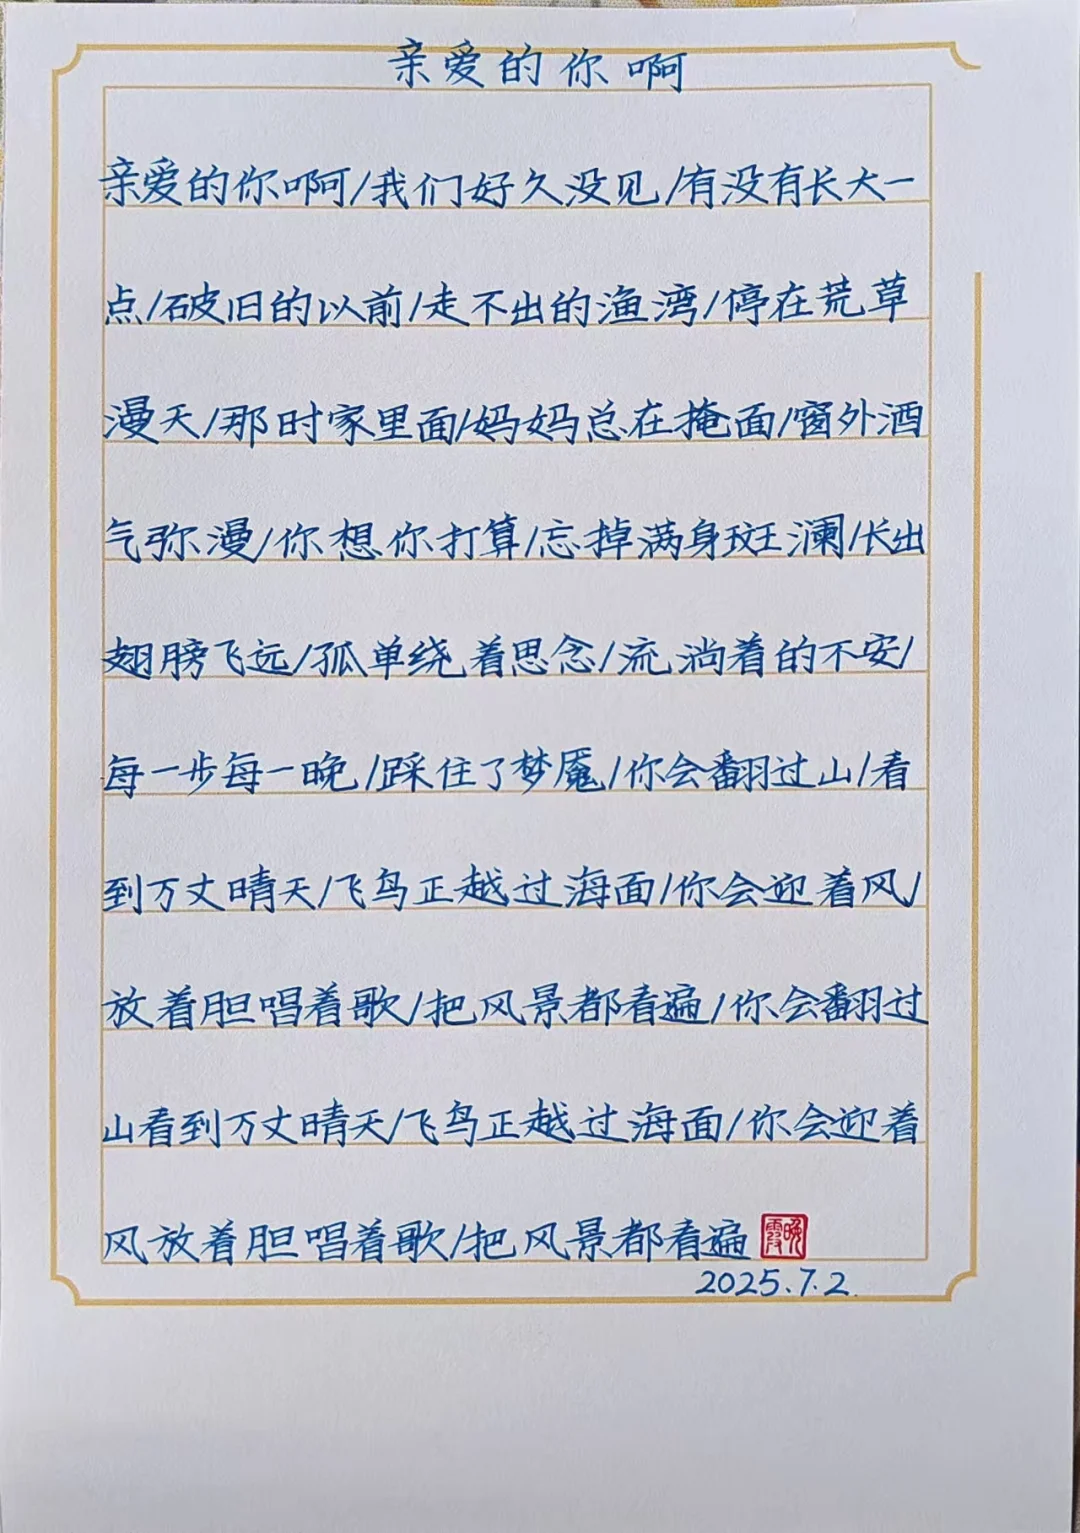 亲爱的你啊
亲爱的你啊/我们好久没见/有没有长大一
点/破旧的以前/走不出的渔湾/停在荒草
漫天/那时家里面/妈妈总在掩面/窗外酒
气弥漫/你想你打算/忘掉满身斑澜/长出
翅膀飞远/孤单绕着思念/流淌着的不安/
每一步每一晚/踩住了梦魇/你会翻过山/看
到万丈晴天/飞鸟正越过海面/你会迎着风/
放着胆唱着歌/把风景都看遍/你会翻过
山看到万丈晴天/飞鸟正越过海面/你会迎着
风放着胆唱着歌/把风景都看遍
晚霞
2025.7.2.